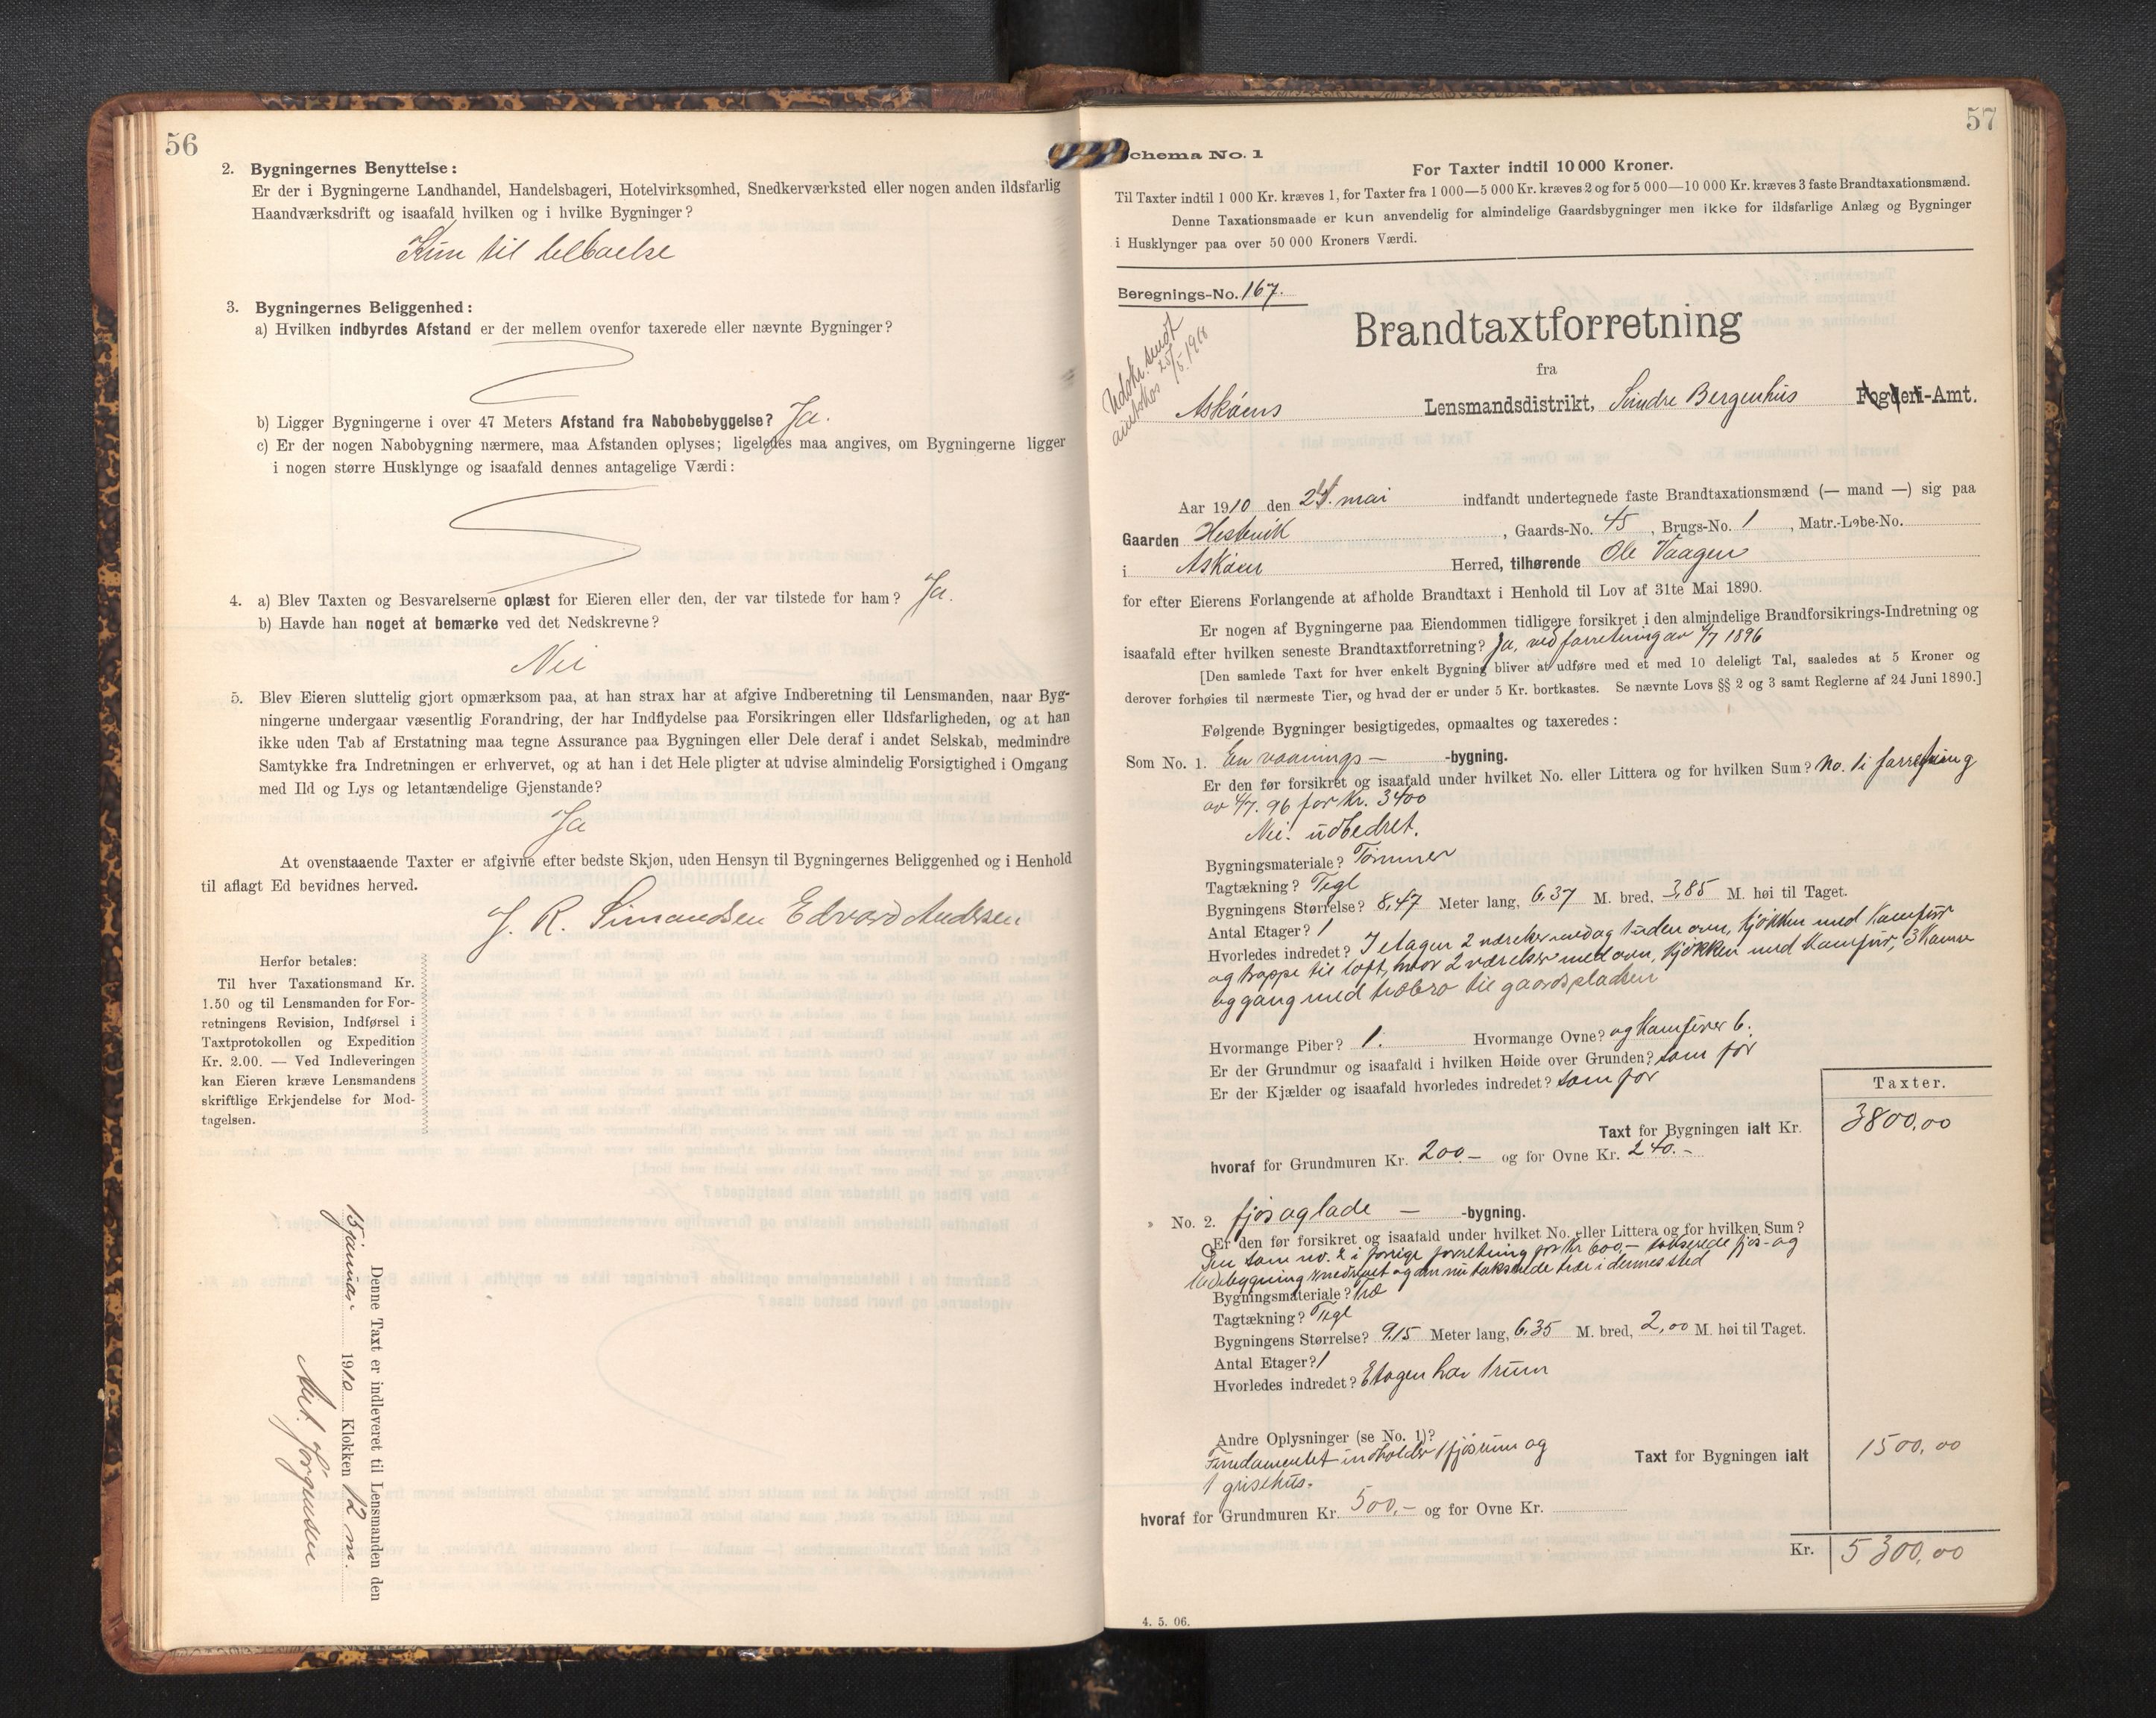 56
2. Bygningernes Benyttelse:
Er der i Bygningerne Landhandel, Handelsbageri, Hotelvirksomhed, Snedkerværksted eller nogen anden ildsfarlig
Haandværksdrift og isaafald hvilken og i hvilke Bygninger?
Kun til
3. Bygningernes Beliggenhed:
a) Hvilken indbyrdes Afstand er der mellem ovenfor taxerede eller nævnte Bygninger?
b) Ligger Bygningerne i over 47 Meters Afstand fra Nabobebyggelse? Ja.
c) Er der nogen Nabobygning nærmere, maa Afstanden oplyses; ligeledes maa angives, om Bygningerne ligger
i nogen større Husklynge og isaafald dennes antagelige Værdi:
4. a) Blev Taxten og Besvarelserne oplæst for Eieren eller den, der var tilstede for ham? Ja.
b) Havde han noget at bemærke ved det Nedskrevne?
Nei
5. Blev Eieren sluttelig gjort opmærksom paa, at han strax har at afgive Indberetning til Lensmanden, naar Byg-
ningerne undergaar væsentlig Forandring, der har Indflydelse paa Forsikringen eller Ildsfarligheden, og at han
ikke uden Tab af Erstatning maa tegne Assurance paa Bygningen eller Dele deraf i andet Selskab, medmindre
Samtykke fra Indretningen er erhvervet, og at han i det Hele pligter at udvise almindelig Forsigtighed i Omgang
med Ild og Lys og letantændelige Gjenstande?
Ja
At ovenstaaende Taxter er afgivne efter bedste Skjøn, uden Hensyn til Bygningernes Beliggenhed og i Henhold
til aflagt Ed bevidnes herved.
J. R. Simonsen Edvard Andersen
Herfor betales:
Til hver Taxationsmand Kr.
1.50 og til Lensmanden for For-
retningens Revision, Indførsel i
Taxtprotokollen og Expedition
Kr. 2.00. — Ved Indleveringen
kan Eieren kræve Lensmandens
skriftlige Erkjendelse for Mod-
tagelsen.
Denne Taxt er indleveret til Lensmanden den
15 januar 1910 Klokken 12 m.
Schema No. 1
57
For Taxter indtil 10 000 Kroner.
Til Taxter indtil 1 000 Kr. kræves 1, for Taxter fra 1 000—5 000 Kr. kræves 2 og for 5 000—10 000 Kr. kræves 3 faste Brandtaxationsmænd.
Denne Taxationsmaade er kun anvendelig for almindelige Gaardsbygninger men ikke for ildsfarlige Anlæg og Bygninger
i Husklynger paa over 50 000 Kroners Værdi.
Beregnings-No. 167.
Udskr. sendt
25/5. 1910
Brandtaxtforretning
fra
Askøens Lensmandsdistrikt, Søndre Bergenhus Fogderi-Amt.
Aar 1910 den 24. mai indfandt undertegnede faste Brandtaxationsmænd (— mand —) sig paa
Gaarden Hestevik, Gaards-No. 45, Brugs-No. 1, Matr.-Løbe-No.
i Askøen Herred, tilhørende Ole Vaagen
for efter Eierens Forlangende at afholde Brandtaxt i Henhold til Lov af 31te Mai 1890.
Er nogen af Bygningerne paa Eiendommen tidligere forsikret i den almindelige Brandforsikrings-Indretning og
isaafald efter hvilken seneste Brandtaxtforretning? Ja, ved forretning av 4/7 1896
[Den samlede Taxt for hver enkelt Bygning bliver at udføre med et med 10 deleligt Tal, saaledes at 5 Kroner og
derover forhøies til nærmeste Tier, og hvad der er under 5 Kr. bortkastes. Se nævnte Lovs §§ 2 og 3 samt Reglerne af 24 Juni 1890.]
Følgende Bygninger besigtigedes, opmaaltes og taxeredes:
Som No. 1. En vaanings— -bygning.
Er den før forsikret og isaafald under hvilket No. eller Littera og for hvilken Sum? No. 1 i forretning
av 4/7. 96 for Kr. 3400
Nei. udbedret.
Bygningsmateriale? Tømmer
Tagtækning? Tegl
Bygningens Størrelse? 8,47 Meter lang, 6,37 M. bred, 3,85 M. høi til Taget.
Antal Etager? 1
Hvorledes indredet? I etagen 2 værelser med og 1 uden ovn, kjøkken med Kamfur
og trappe til loft, hvor 2 værelser med ovn, kjøkken med Kamfur, 3 Kamre
og gang med træbro til gaardspladsen
Hvormange Piber? 1. Hvormange Ovne? og Kamfurer 6.
Er der Grundmur og isaafald i hvilken Høide over Grunden? som før
Er der Kjælder og isaafald hvorledes indredet? som før
Taxter.
Taxt for Bygningen ialt Kr. 3800,00
hvoraf for Grundmuren Kr. 200.— og for Ovne Kr. 240.—
No. 2. fjøs og lade — -bygning.
Er den før forsikret og isaafald under hvilket No. eller Littera og for hvilken Sum?
Den som no. 2 i forrige forretning for Kr 600,— takserede fjøs- og
ladebygning nedrevet og den nu takserede træ i dennes sted
Bygningsmateriale? Træ
Tagtækning? Tegl
Bygningens Størrelse? 9,15 Meter lang, 6,35 M. bred, 2,00 M. høi til Taget.
Antal Etager? 1
Hvorledes indredet? Etagen har 1 rum
Andre Oplysninger (se No. 1)?
Fundamentet indholder 1 fjøsrum og
1 grisehus.
Taxt for Bygningen ialt 1500,00
hvoraf for Grundmuren Kr. 500,— og for Ovne Kr.
Kr. 5300,00
4. 5. 06.